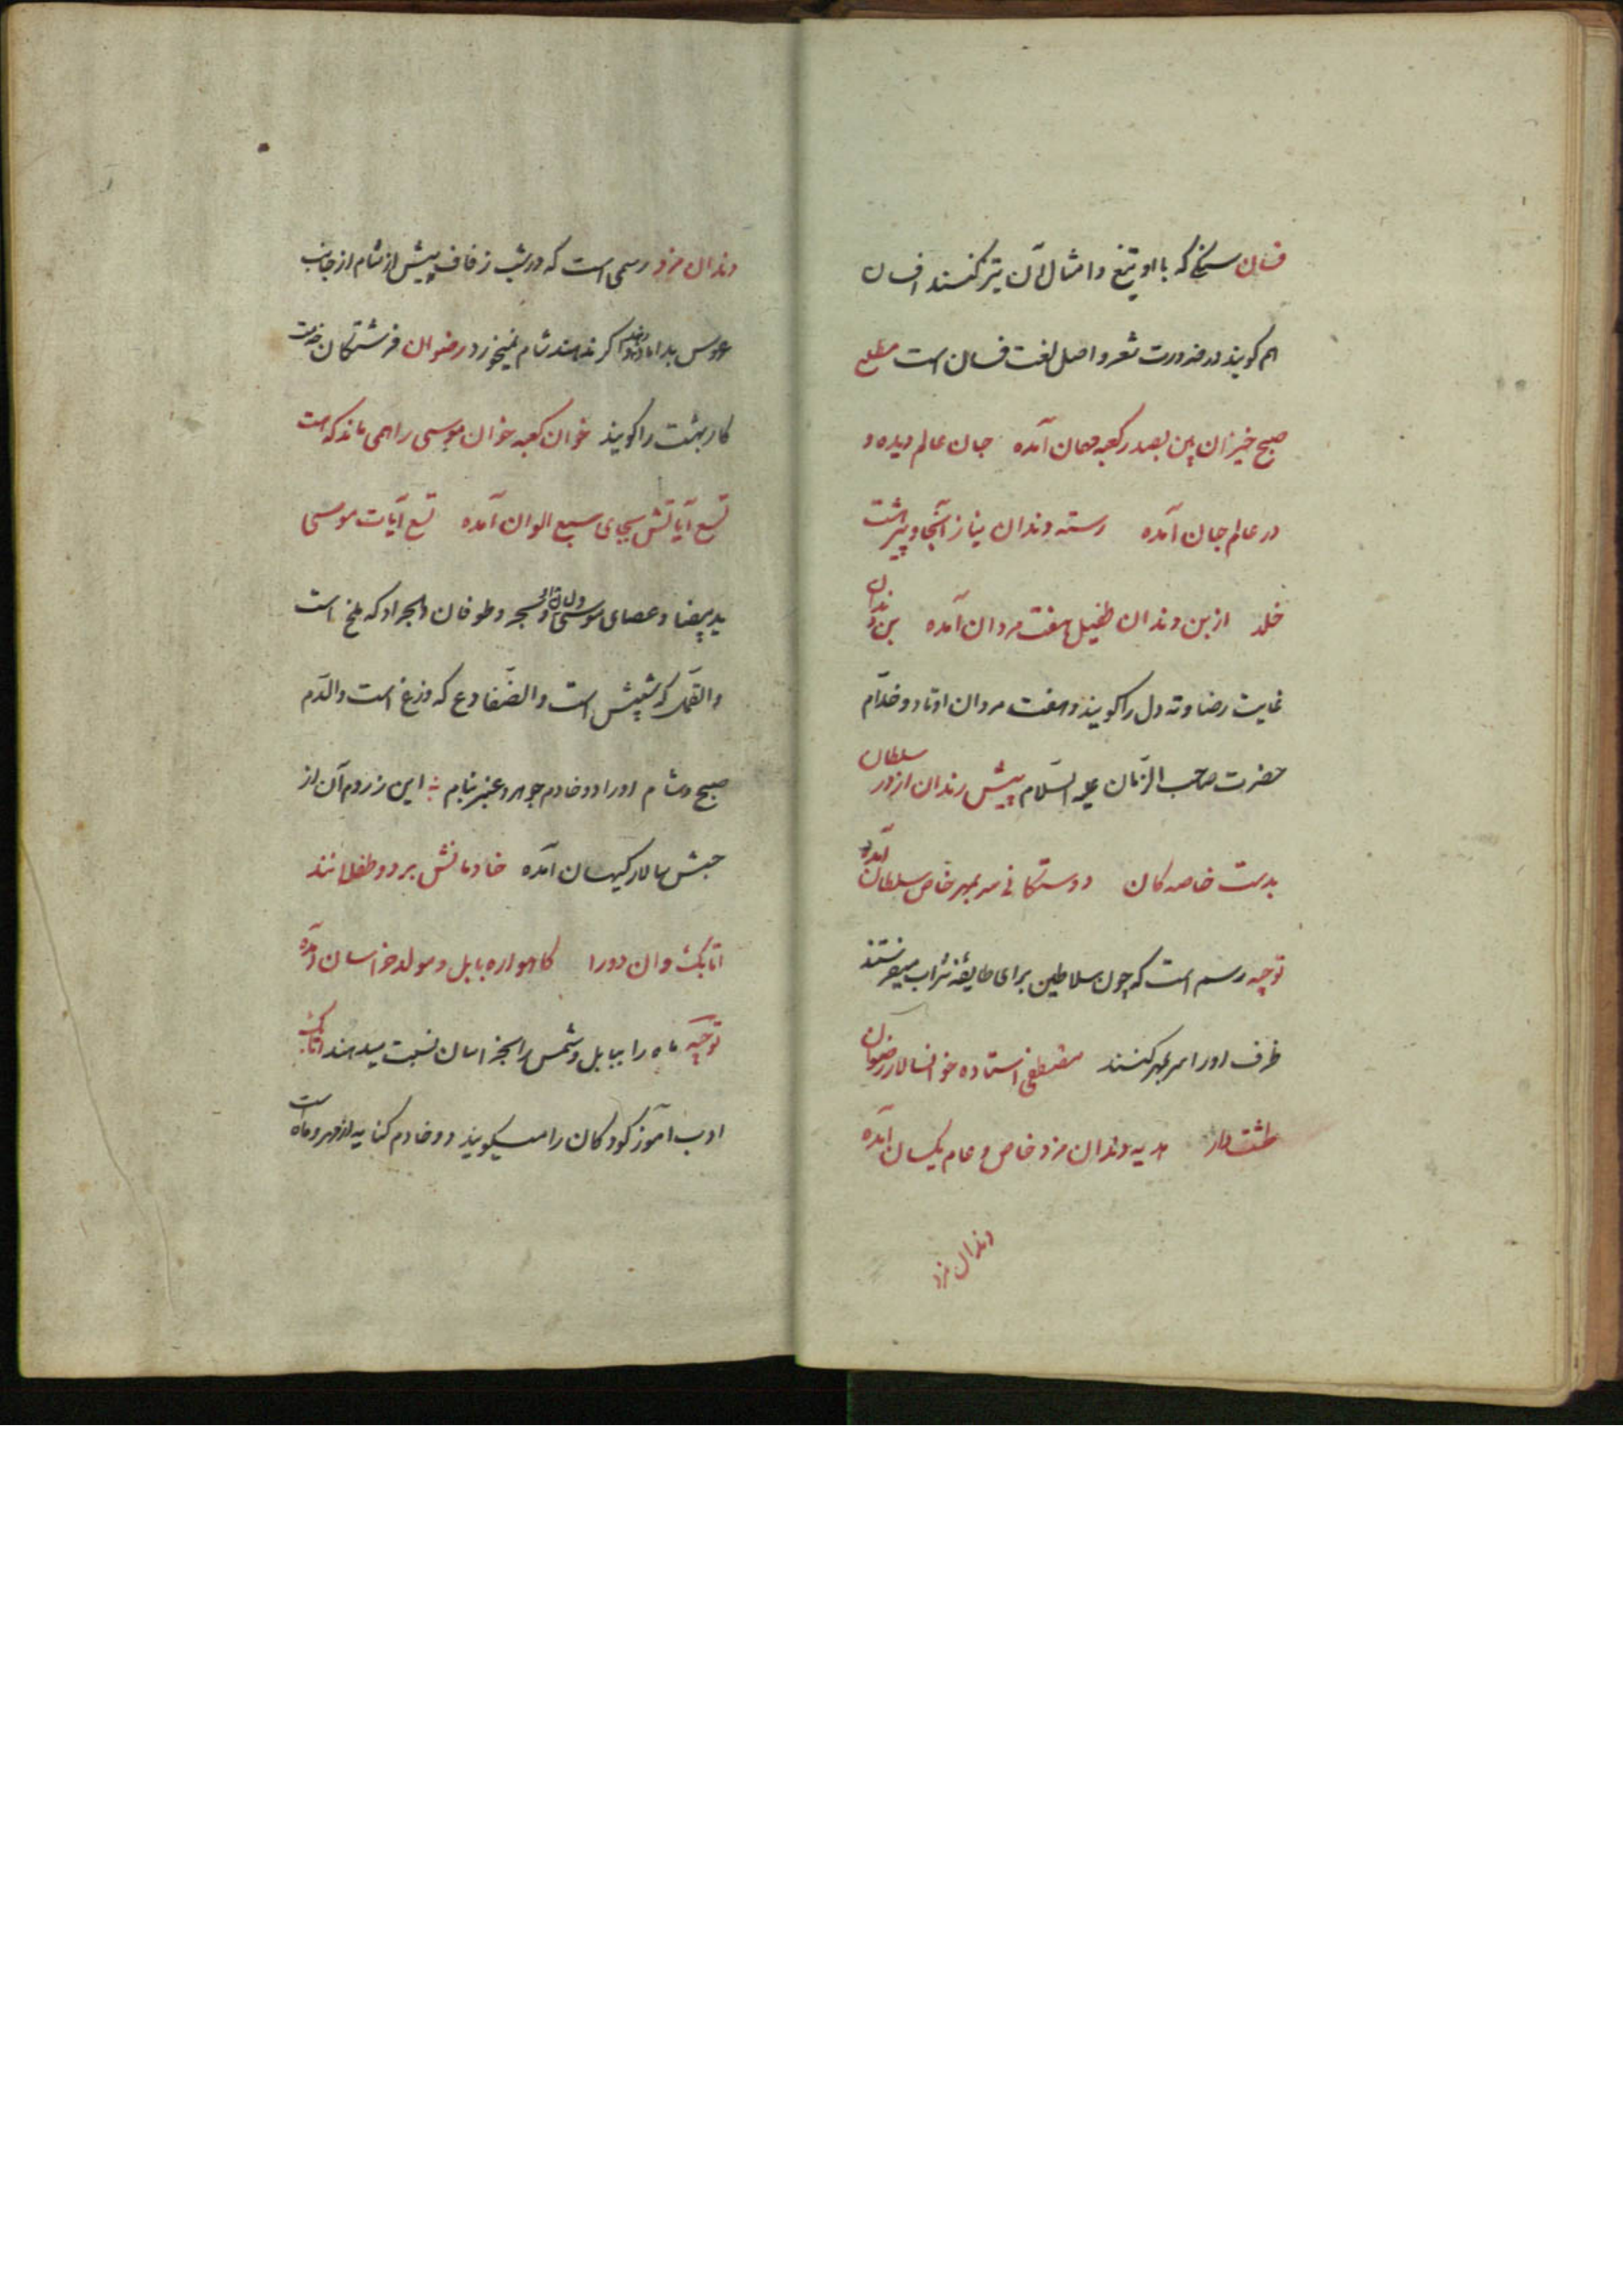 فسان سنکی که با او تیغ و امثال آن تیز کنند افسان
هم کویند در ضرورت شعر و اصل لغت فسان است مطلع
صبح خیزان بین بصدر کعبه مهمان آمده جان عالم دیده و
در عالم جان آمده رسته دندان نیاز آنجا و پیر هشت
خلد از بن دندان طفیل هفت مردان آمده بن دندان
غایت رضا و ته دل را کویند و هفت مردان اوتاد و خدّام
حضرت صاحب الزّمان علیه السّلام پیش رندان از در سلطان
بدست خاصه کان دوستکانی سر بمهر خاص سلطان آمده
توجیه رسم است که چون سلاطین برای طایفه شراب میفرستند
ظرف او را سر بمهر کنند مصطفی استاده خوانسالار رضوان
طشت دار هدیه دندان مزد خاص و عام یکسان آمده
دندان مزد
دندان مزد رسمی است که در شب زفاف پیش از شام از جانب
عروس بداماد دهند اکر ندهند شام نمیخورد رضوان فرشتکان خدمت
کار بهشت را کویند خوان کعبه خوان موسی را همی ماند که هست
تسع آیاتش بجای سبع الوان آمده تسع آیات موسی
ید بیضا و عصای موسی و الحجر و طوفان و الجراد که ملخ است
و القمّل که شپش است و الضّفادع که وزغ است و الدّم
صبح و شام او را دو خادم جوهر و عنبر بنام این ز روم آن از
حبش سالار کیهان آمده خادمانش بر دو طفلانند
اتابک وان دو را کاهواره بابل و مولد خراسان آمده
توجیه ماه را ببابل و شمس را بخراسان نسبت میدهند اتابک
ادب آموز کودکان را میکویند دو خادم کنایه از مهر و ماه است